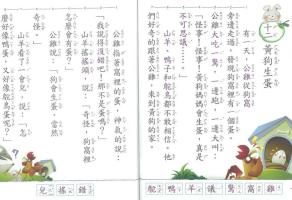 十一、黃狗生蛋
有一天,公雞從狗窩
旁邊走過,發現狗窩裡有一個蛋。
公雞大吃一驚,一邊跑,一邊大叫:
「怪事!怪事!黃狗媽媽會生蛋,真是
不可思議……」
山羊、鴨子和鴕鳥都不敢相信。他
們好奇的跟著公雞,來到黃狗的家。
公雞指著窩裡的蛋,神氣的說:
「我說得沒錯吧!那不是蛋嗎?」
山羊搖搖頭,說:「奇怪!狗窩裡
怎麼會有蛋?」
公雞說:「黃狗會生蛋,當然
奇怪。」
山羊看了一會兒,說:「怎
麼好像鴨蛋,又好像鴕鳥蛋呢?」
雞 窩 驚 議 羊 鴨 鴕
錯 搖 兒